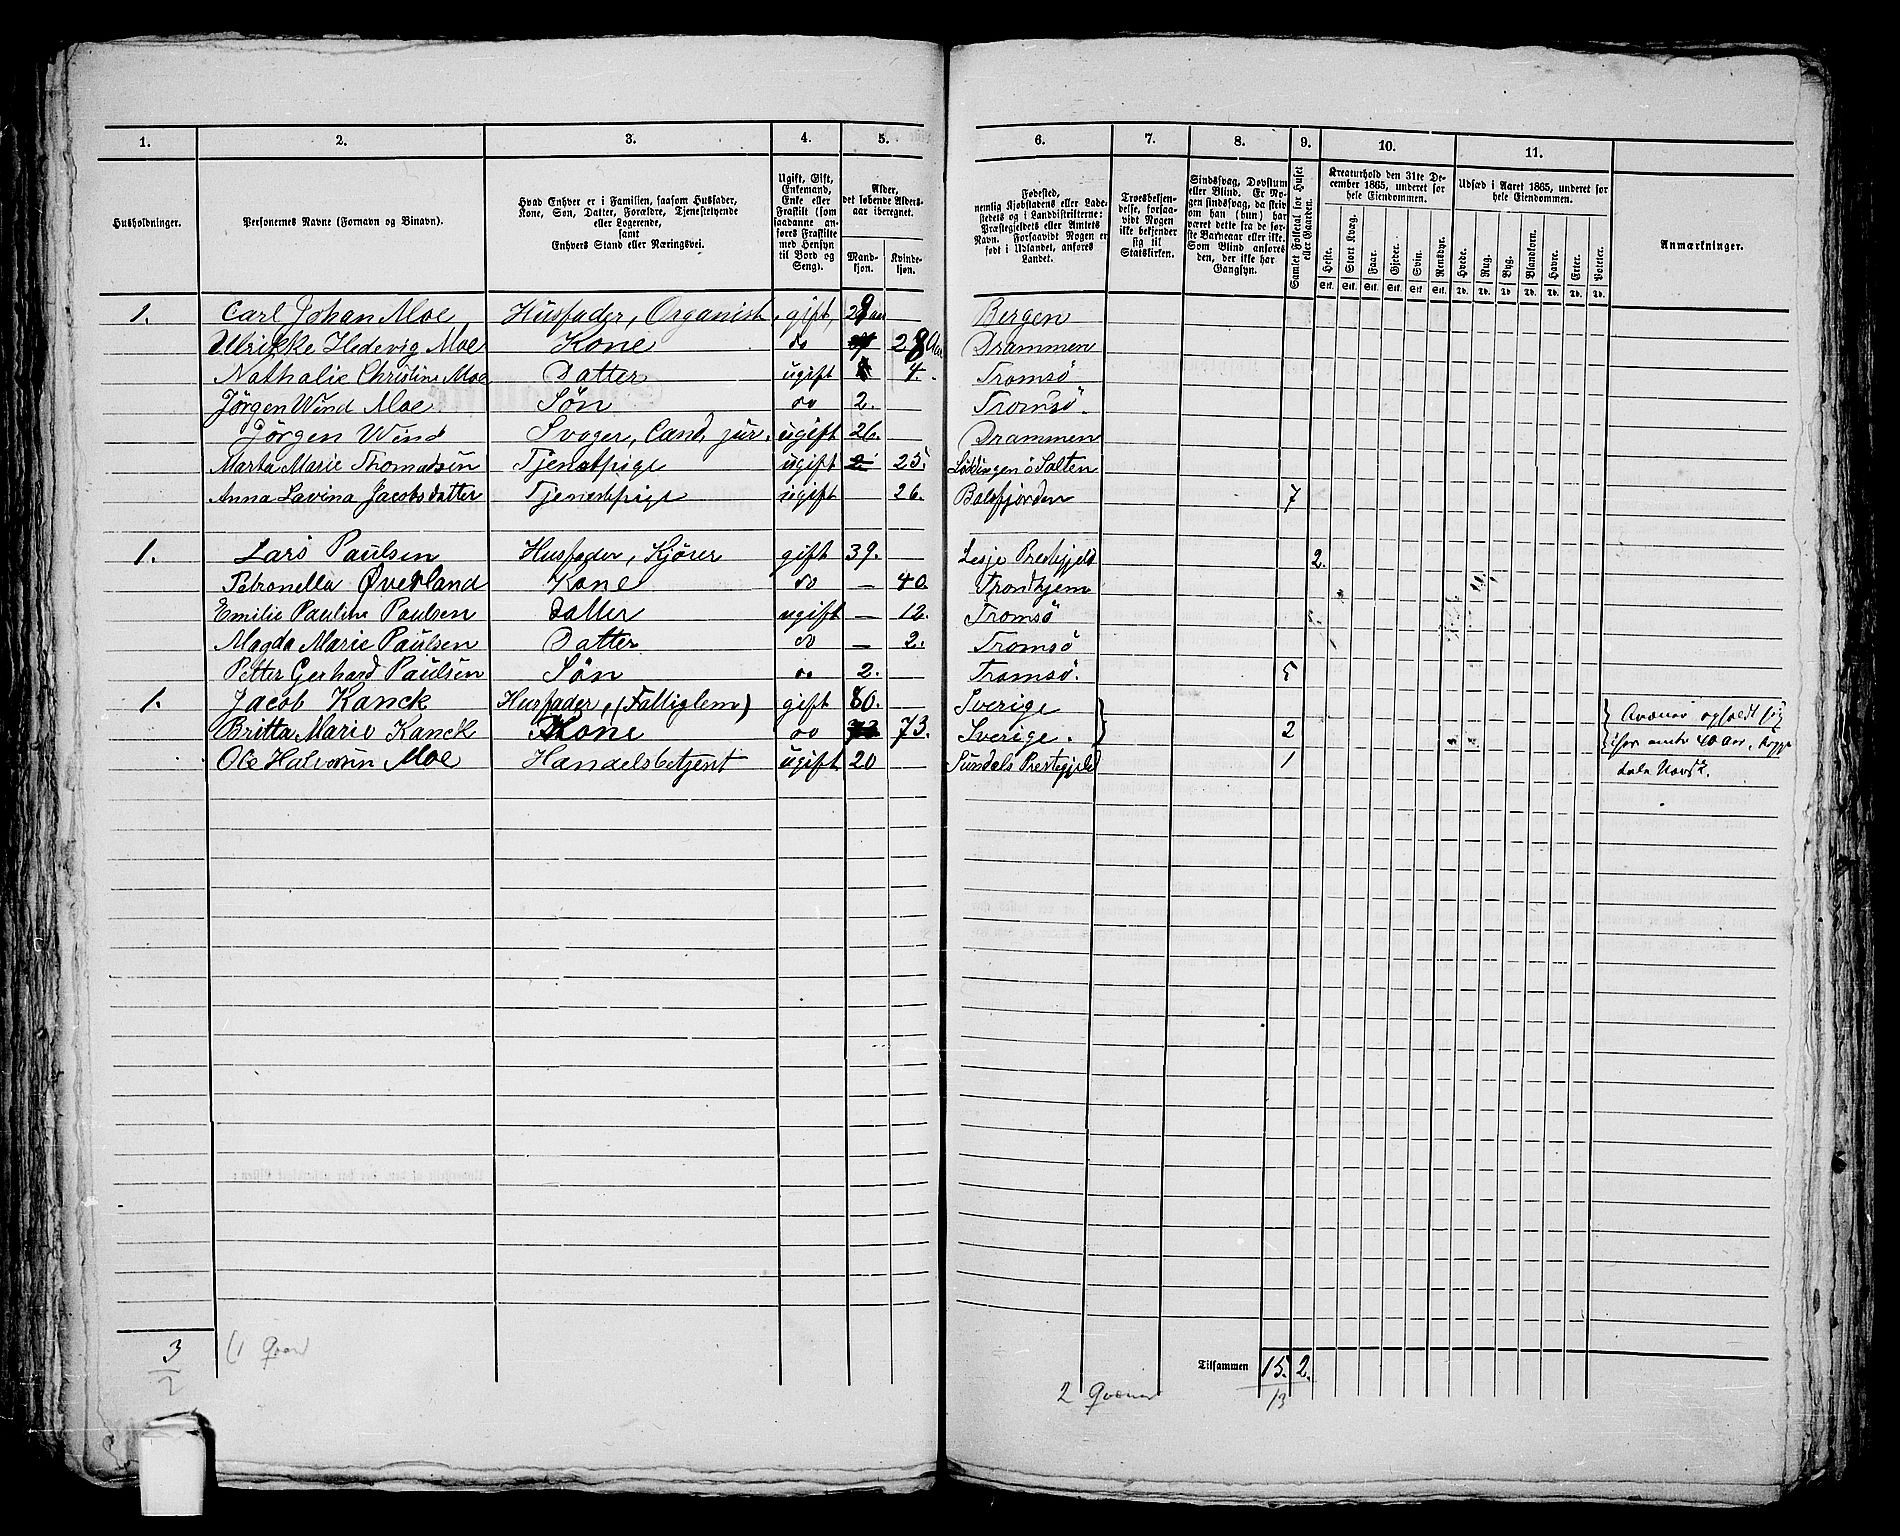 1. 2. 3. 4. 5. 6. 7. 8. 9. 10. 11.
Husholdninger.
Personernes Navne (Fornavn og Binavn).
Hvad Enhver er i Familien, saasom Husfader,
Kone, Søn, Datter, Forældre, Tjenestetyende
eller Logerende,
samt
Enhvers Stand eller Næringsvei.
Ugift, Gift,
Enkemand,
Enke eller
Fraskilt (som
saadanne an-
føres Fraskilte
med Hensyn
til Bord og
Seng).
Alder,
det løbende Alders-
aar iberegnet.
Mand-
kjøn.
Kvinde-
kjøn.
Fødested,
nemlig Kjøbstadens eller Lade-
stedets og i Landdistrikterne:
Præstegjeldets eller Amtets
Navn. Forsaavidt Nogen er
født i Udlandet, anføres
Landet.
Troesbekjen-
delse, forsaa-
vidt Nogen
ikke bekjender
sig til
Statskirken.
Sindssvag, Døvstum
eller Blind. Er No-
gen sindssvag, da skriv
om han (hun) har
været dette fra de før-
ste Barneaar eller ikke.
Som Blind anføres
den, der ikke har
Gangsyn.
Samlet Folketal for Huset
eller Gaarden.
Kreaturhold den 31te De-
cember 1865, underet for
hele Eiendommen.
Heste. Stort Kvæg. Faar. Gjeder. Svin. Rensdyr.
Stk. Stk. Stk. Stk. Stk. Stk.
Udsæd i Aaret 1865, underet for
hele Eiendommen.
Hvede. Rug. Byg. Blandkorn. Havre. Erter. Poteter.
Td. Td. Td. Td. Td. Td. Td.
Anmærkninger.
1. Carl Johan Moe Husfader, Organist, gift, 29 Bergen
Ulrikke Hedevig Moe Kone do 28 Aar Drammen
Nathalie Christine Moe Datter ugift 4. Tromsö
Jörgen Wind Moe Sön do 2. Tromsö.
Jörgen Wind Svoger, Cand, jur. ugift 26. Drammen
Marta Marie Thomadsen Tjenstpige ugift 25. Löddingen i Salten
Anna Lavina Jacobsdatter Tjenestepige ugift 26. Balsfjorden 7
1. Lars Paulsen Husfader, Kjörer gift 39. Lesje Prestegjeld 2.
Petronella Øverland Kone do — 40. Trondhjem
Emilie Pauline Paulsen Datter ugift — 12. Tromsö
Magda Marie Paulsen Datter do — 2. Tromsö
Petter Gerhard Paulsen Sön do 2. Tromsö. 5
1. Jacob Kanck Husfader, (Fattiglem) gift 80. Sverige
Britta Marie Kanck Kone do 73. Sverige. 2
Ole Halvorsen Moe Handelsbetjent ugift 20 Sundals Prestegjeld 1
Qvæner opholdt sig
her omtr 40 Aar, begge
tale Norsk.
3 (1 Qvæn
2
Tilsammen 15. 2.
2 Qvæner 13